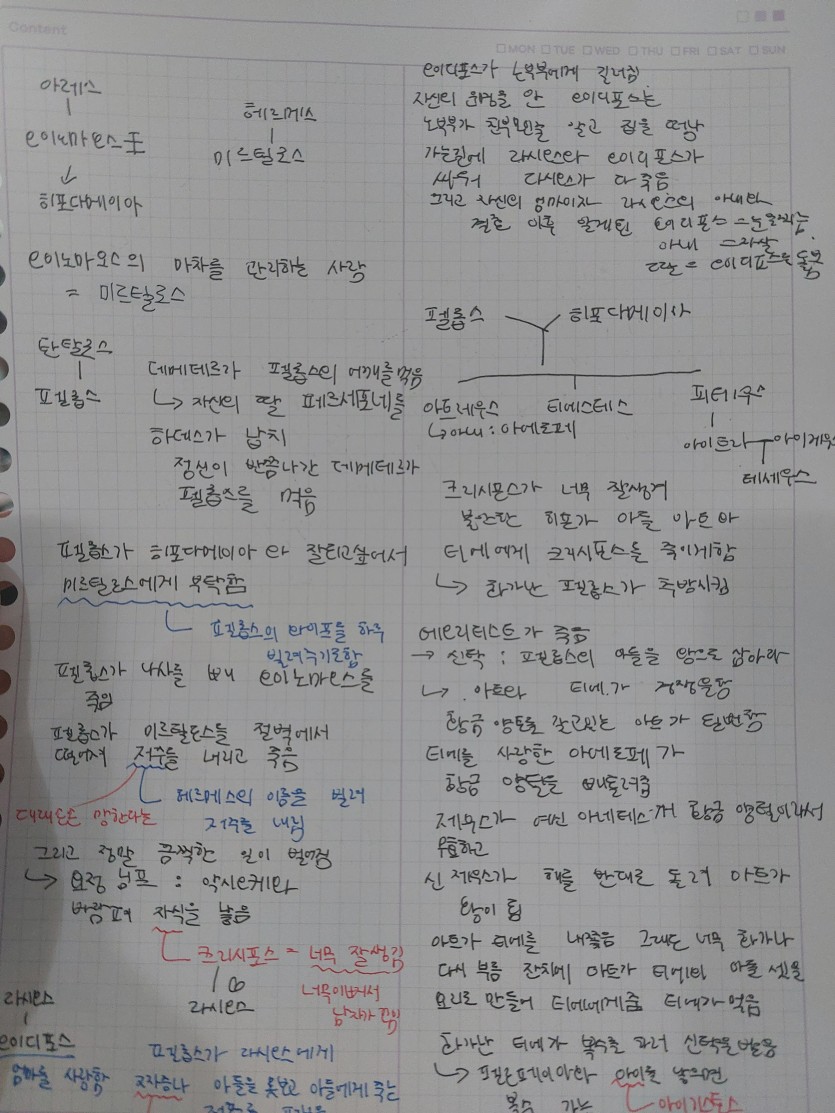 Content
MON TUE WED THU FRI SAT SUN
아레스
헤르메스
에이노마오스 王
미르틸로스
히포다메이아
에이노마오스의 마차를 관리하는 사람
= 미르틸로스
탄탈로스
펠롭스
데메테르가 펠롭스의 어깨를 먹음
↳ 자신의 딸 페르세포네를
하데스가 납치
정신이 반쯤나간 데메테르가
펠롭스를 먹음
펠롭스가 히포다메이아와 잘되고싶어서
미르틸로스에게 부탁함
펠롭스의 와이프를 하루
빌려주기로함
펠롭스가 나사를 빼 에이노마오스를
죽임
펠롭스가 미르틸로스를 절벽에서
떨어져 저주를 내리고 죽음
헤르메스의 이름을 빌려
저주를 내림
대대손손 망한다는
그리고 정말 끔찍한 일이 벌어짐
↳ 요정 님프 : 악시오케와
바람펴 자식을 낳음
크리시포스 = 너무 잘생김
라시오스
너무이뻐서
남자가
라시오스
에이디포스
엄마를 사랑함
펠롭스가 라시오스에게
아들을 못낳고 아들에게 죽는
에이디포스가 노부부에게 길러짐
자신의 운명을 안 에이디포스는
노부부가 친부모인줄 알고 집을 떠남
가는길에 라시오스와 에이디포스가
싸워 라시오스가 다 죽음
그리고 자신의 엄마이자 라시오스의 아내와
결혼 이후 알게된 에이디포스
아내 = 자살
딸 = 에이디포스를 돌봄
펠롭스
히포다메이아
아트레우스
티에스테스
피테우스
↳아내 : 아에로페
아이트라
아이게우스
테세우스
크리시포스가 너무 잘생겨
불안한 히포가 아들 아트와
티에에게 크리시포스를 죽이게함
↳ 화가난 펠롭스가 추방시킴
가 죽음
→ 신탁 : 펠롭스의 아들을 왕으로 삼아라
↳ 아트와 티에.가 경쟁을함
황금 양털을 갖고있는 아트가
티에를 사랑한 아에로페가
황금 양털을 빼돌려줌
제우스가 여신 황금 양털이라서
무효하고
신 제우스가 해를 반대로 돌려 아트가
왕이 됨
아트가 티에를 내쫓음 그래도 너무 화가나
다시 부름 잔치에 아트가 티에의 아들 셋을
요리로 만들어 티에에게줌 티에가 먹음
화가난 티에가 복수를 하러 신탁을 받음
↳ 펠로페이아와 아이를 낳으면
복수 가능
아이기스토스